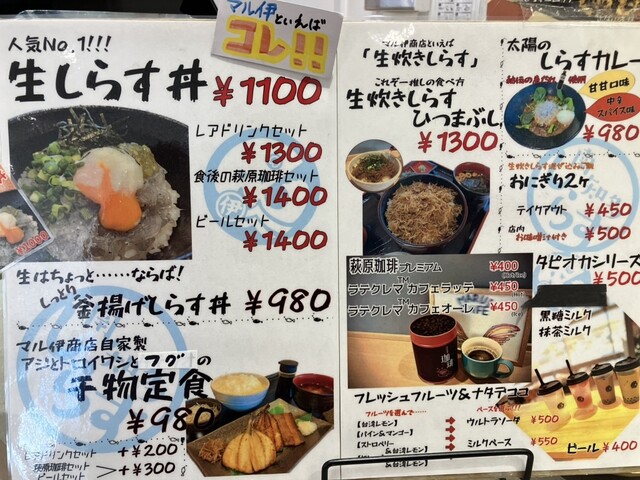 マル伊といえば
コレ!!
人気No.1!!!
生しらす丼 ¥1100
レアドリンクセット
¥1300
食後の萩原珈琲セット
¥1400
ビールセット
¥1400
生はちょっと……ならば!
しっとり
釜揚げしらす丼 ¥980
マル伊商店自家製
アジとトロイワシとフグの
干物定食
¥980
レアドリンクセット +¥200
萩原珈琲セット
ビールセット > +¥300
マル伊商店といえば
「生炊きしらす」
これぞ一推しの食べ方
生炊きしらす
ひつまぶし
¥1300
萩原珈琲 プレミアム ¥400
ラテクレマ™カフェラッテ ¥450
ラテクレマ™カフェオーレ ¥450
フレッシュフルーツ&ナタデココ
フルーツを選んで……
【台湾レモン】
【パイン&マンゴー】
【ストロベリー
&台湾レモン】
ベースを選ぶ!!
ウルトラソーダ ¥500
ミルクベース ¥550
太陽の
しらすカレー
甘甘口味
中辛
スパイス味
¥980
おにぎり2ヶ
テイクアウト ¥450
店内
お味噌汁付き ¥500
タピオカシリーズ
¥500
黒糖ミルク
抹茶ミルク
ビール ¥400